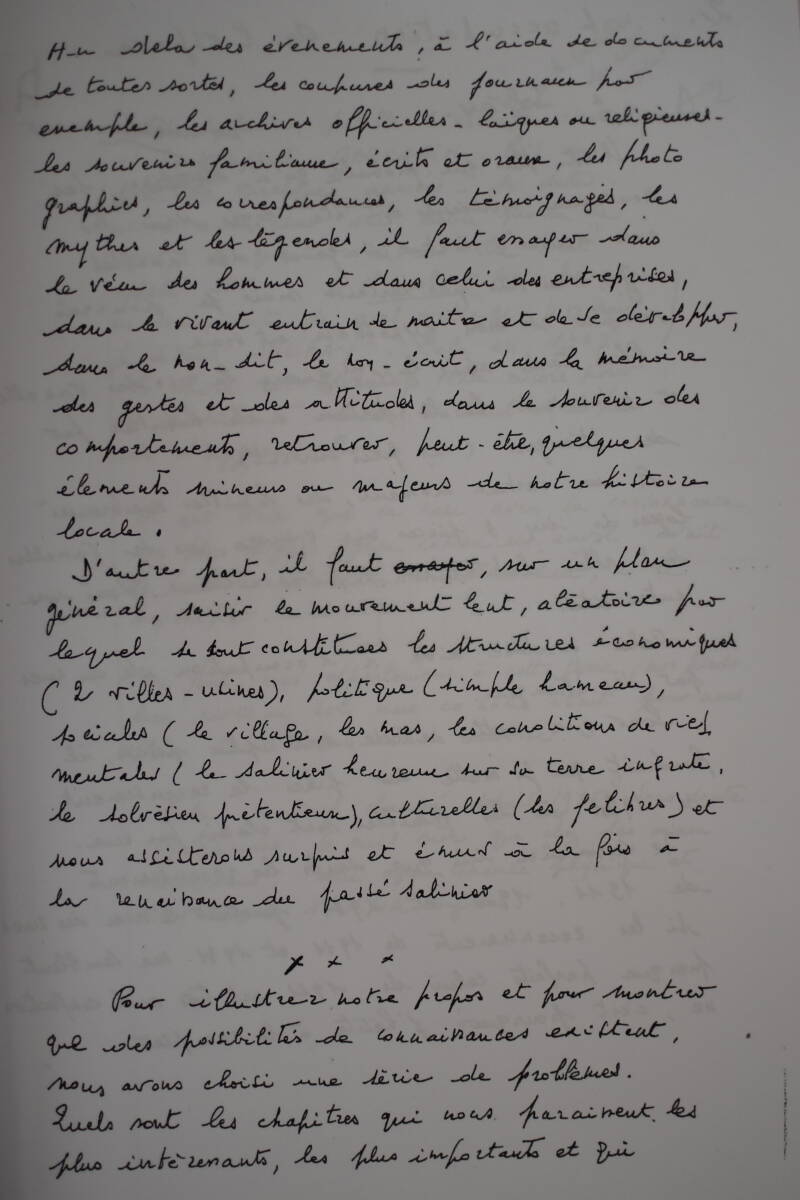 Au dela des évenements, à l'aide de documents
de toutes sortes, les coupures des journaux par
exemple, les archives officielles - laïques ou religieuses -
les souvenirs familiaux, écrits et oraux, les photo
graphies, les correspondances, les témoignages, les
mythes et les légendes, il faut essayer dans
le vécu des hommes et dans celui des entreprises,
dans le vivant entrain de naitre et de se développer,
dans le non-dit, le non-écrit, dans la mémoire
des gestes et des attitudes, dans le souvenir des
comportements, retrouver, peut-être, quelques
élements mineurs ou majeurs de notre histoire
locale.
D'autre part, il faut essayer, sur un plan
général, saisir le mouvement lent, aléatoire par
lequel se sont constituées les structures économiques
(2 villes-usines), politique (simple hameau),
sociales (le village, les mas, les conditions de vie),
mentales (le salinier heureux sur sa terre ingrate,
le solvésien prétentieux), culturelles (les felibres) et
nous assisterons surpris et émus à la fois à
la renaissance du passé salinier
x x x
Pour illustrer notre propos et pour montrer
que des possibilités de connaissances existent,
nous avons choisi une série de problèmes.
Quels sont les chapitres qui nous paraissent les
plus intéressants, les plus importants et qui